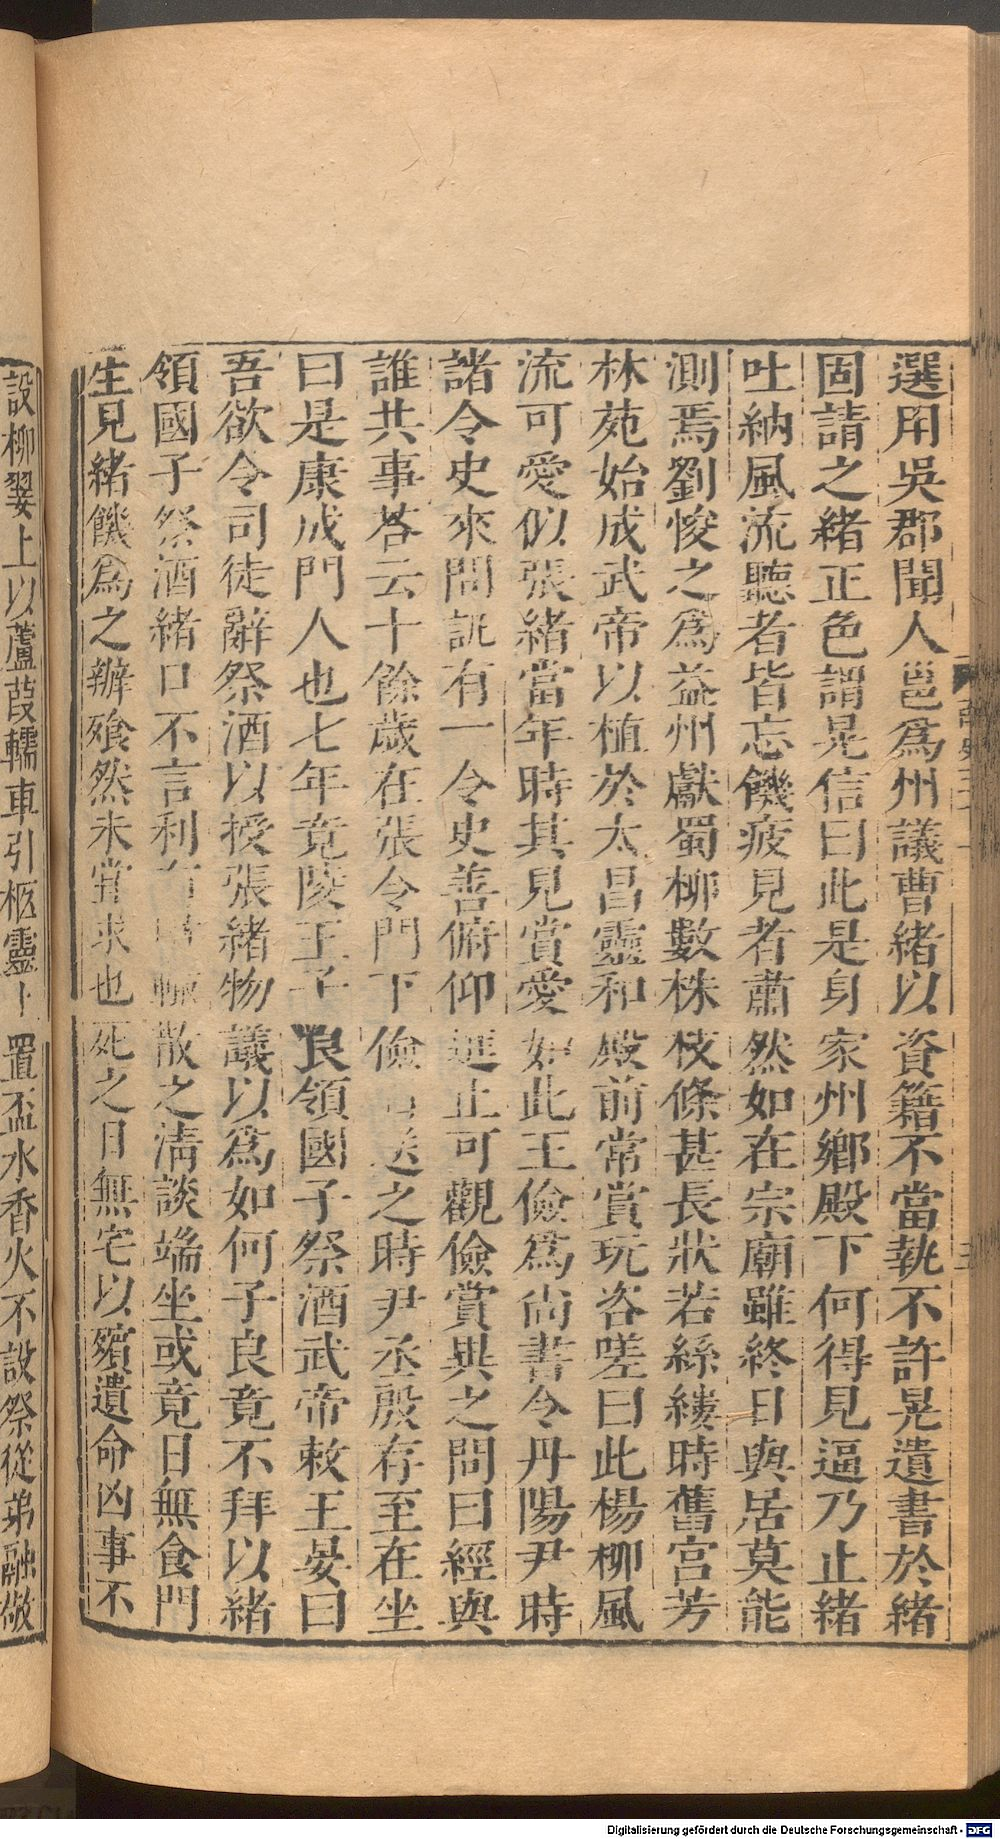 選用吳郡聞人邕爲州議曹緒以資籍不當執不許晃遺書於緒
固請之緒正色謂晃信曰此是身家州鄉殿下何得見逼乃止緒
吐納風流聽者皆忘饑疲見者肅然如在宗廟雖終日與居莫能
測焉劉悛之爲益州獻蜀柳數株枝條甚長狀若絲縷時舊宮芳
林苑始成武帝以植於太昌靈和殿前常賞玩咨嗟曰此楊柳風
流可愛似張緒當年時其見賞愛如此王儉爲尚書令丹陽尹時
諸令史來問訊有一令史善俯仰進止可觀儉賞異之問曰經與
誰共事荅云十餘歲在張令門下儉送之時尹丞殷存至在坐
曰是康成門人也七年竟陵王子良領國子祭酒武帝敕王晏曰
吾欲令司徒辭祭酒以授張緒物議以爲如何子良竟不拜以緒
領國子祭酒緒口不言利有輒散之清談端坐或竟日無食門
生見緒饑爲之辦飧然未嘗求也死之日無宅以殯遺命凶事不
設柳翣上以蘆葭轜車引柩靈上置盃水香火不設祭從弟融敬
Digitalisierung gefördert durch die Deutsche Forschungsgemeinschaft - DFG